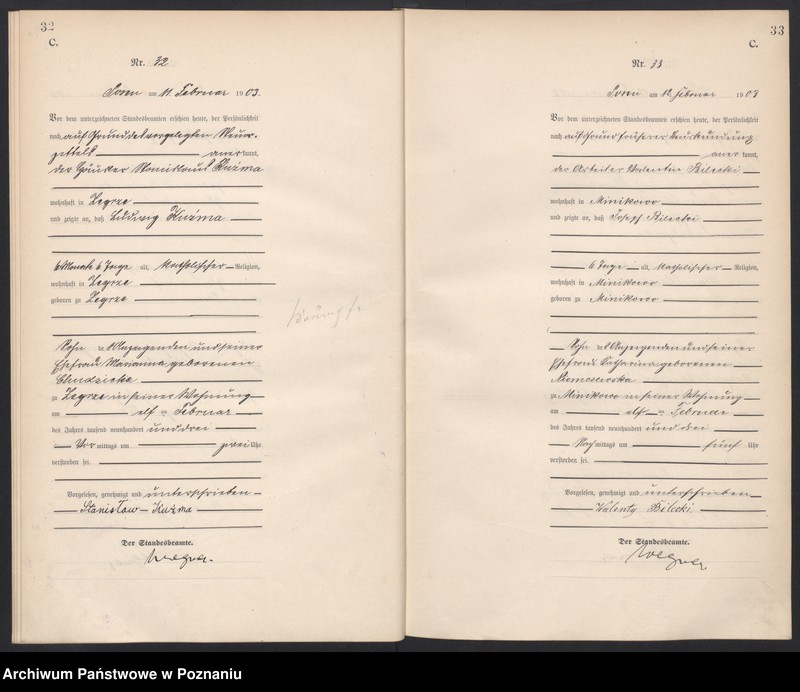 32
C.
Nr. 32
am 11. Februar 1903.
Vor dem unterzeichneten Standesbeamten erschien heute, der Persönlichkeit
nach auf Grund des vorgelegten
zettels anerkannt,
der Kuźma
wohnhaft in Zegrze
und zeigte an, daß Ludwig Kuźma
6 Monate 6 Tage alt, katholischer Religion,
wohnhaft in Zegrze
geboren zu Zegrze
Sohn des Anzeigenden und seiner
Ehefrau Marianna geborenen
Chudzicka
zu Zegrze in seiner Wohnung
am elf ten Februar
des Jahres tausend neunhundert und drei
Vor mittags um zwei Uhr
verstorben sei.
Vorgelesen, genehmigt und unterschrieben
Stanisław Kuźma
Der Standesbeamte.
Wegner.
Krämpfe
33
C.
Nr. 33
am 12. Februar 1903
Vor dem unterzeichneten Standesbeamten erschien heute, der Persönlichkeit
nach auf Grund früherer Beurkundung
anerkannt,
der Arbeiter Valentin Bilecki
wohnhaft in Minikowo
und zeigte an, daß Joseph Bilecki
6 Tage alt, katholischer Religion,
wohnhaft in Minikowo
geboren zu Minikowo
Sohn des Anzeigenden und seiner
Ehefrau Catharina geborenen
zu Minikowo in seiner Wohnung
am elf ten Februar
des Jahres tausend neunhundert und drei
Nach mittags um fünf Uhr
verstorben sei.
Vorgelesen, genehmigt und unterschrieben
Walenty Bilecki
Der Standesbeamte.
Wegner.
Archiwum Państwowe w Poznaniu